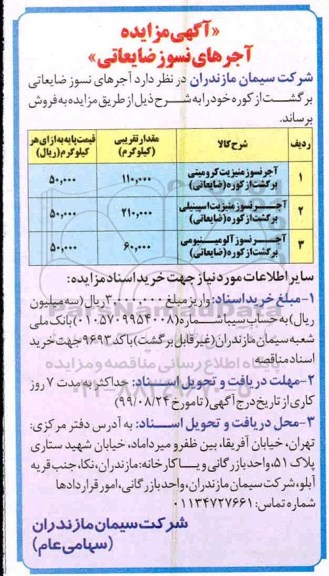 «آگهی مزایده
آجرهای نسوز ضایعاتی»
شرکت سیمان مازندران در نظر دارد آجرهای نسوز ضایعاتی
برگشت از کوره خود را به شرح ذیل از طریق مزایده به فروش
برساند.
ردیف شرح کالا مقدار تقریبی (کیلوگرم) قیمت پایه به ازای هر کیلوگرم (ریال)
۱ آجر نسوز منیزیت کرومیتی برگشت از کوره (ضایعاتی) ۱۱۰,۰۰۰ ۵۰,۰۰۰
۲ آجر نسوز منیزیت اسپینلی برگشت از کوره (ضایعاتی) ۲۱۰,۰۰۰ ۵۰,۰۰۰
۳ آجر نسوز آلومینیومی برگشت از کوره (ضایعاتی) ۶۰,۰۰۰ ۵۰,۰۰۰
سایر اطلاعات مورد نیاز جهت خرید اسناد مزایده:
۱-مبلغ خرید اسناد: واریز مبلغ ۳,۰۰۰,۰۰۰ ریال (سه میلیون
ریال) به حساب سیبا شماره (۰۱۰۵۷۰۹۹۵۴۰۰۸) بانک ملی
شعبه سیمان مازندران (غیر قابل برگشت) با کد ۹۶۹۳ جهت خرید
اسناد مناقصه
۲-مهلت دریافت و تحویل اسناد: حداکثر به مدت ۷ روز
کاری از تاریخ درج آگهی (تا مورخ ۹۹/۰۸/۲۴)
۳-محل دریافت و تحویل اسناد: به آدرس دفتر مرکزی:
تهران، خیابان آفریقا، بین ظفر و میرداماد، خیابان شهید ستاری
پلاک ۵۱، واحد بازرگانی و یا کارخانه: مازندران، نکا، جنب قریه
آبلو، شرکت سیمان مازندران، واحد بازرگانی، امور قراردادها
شماره تماس: ۰۱۱۳۴۷۲۷۶۶۱
شرکت سیمان مازندران
(سهامی عام)